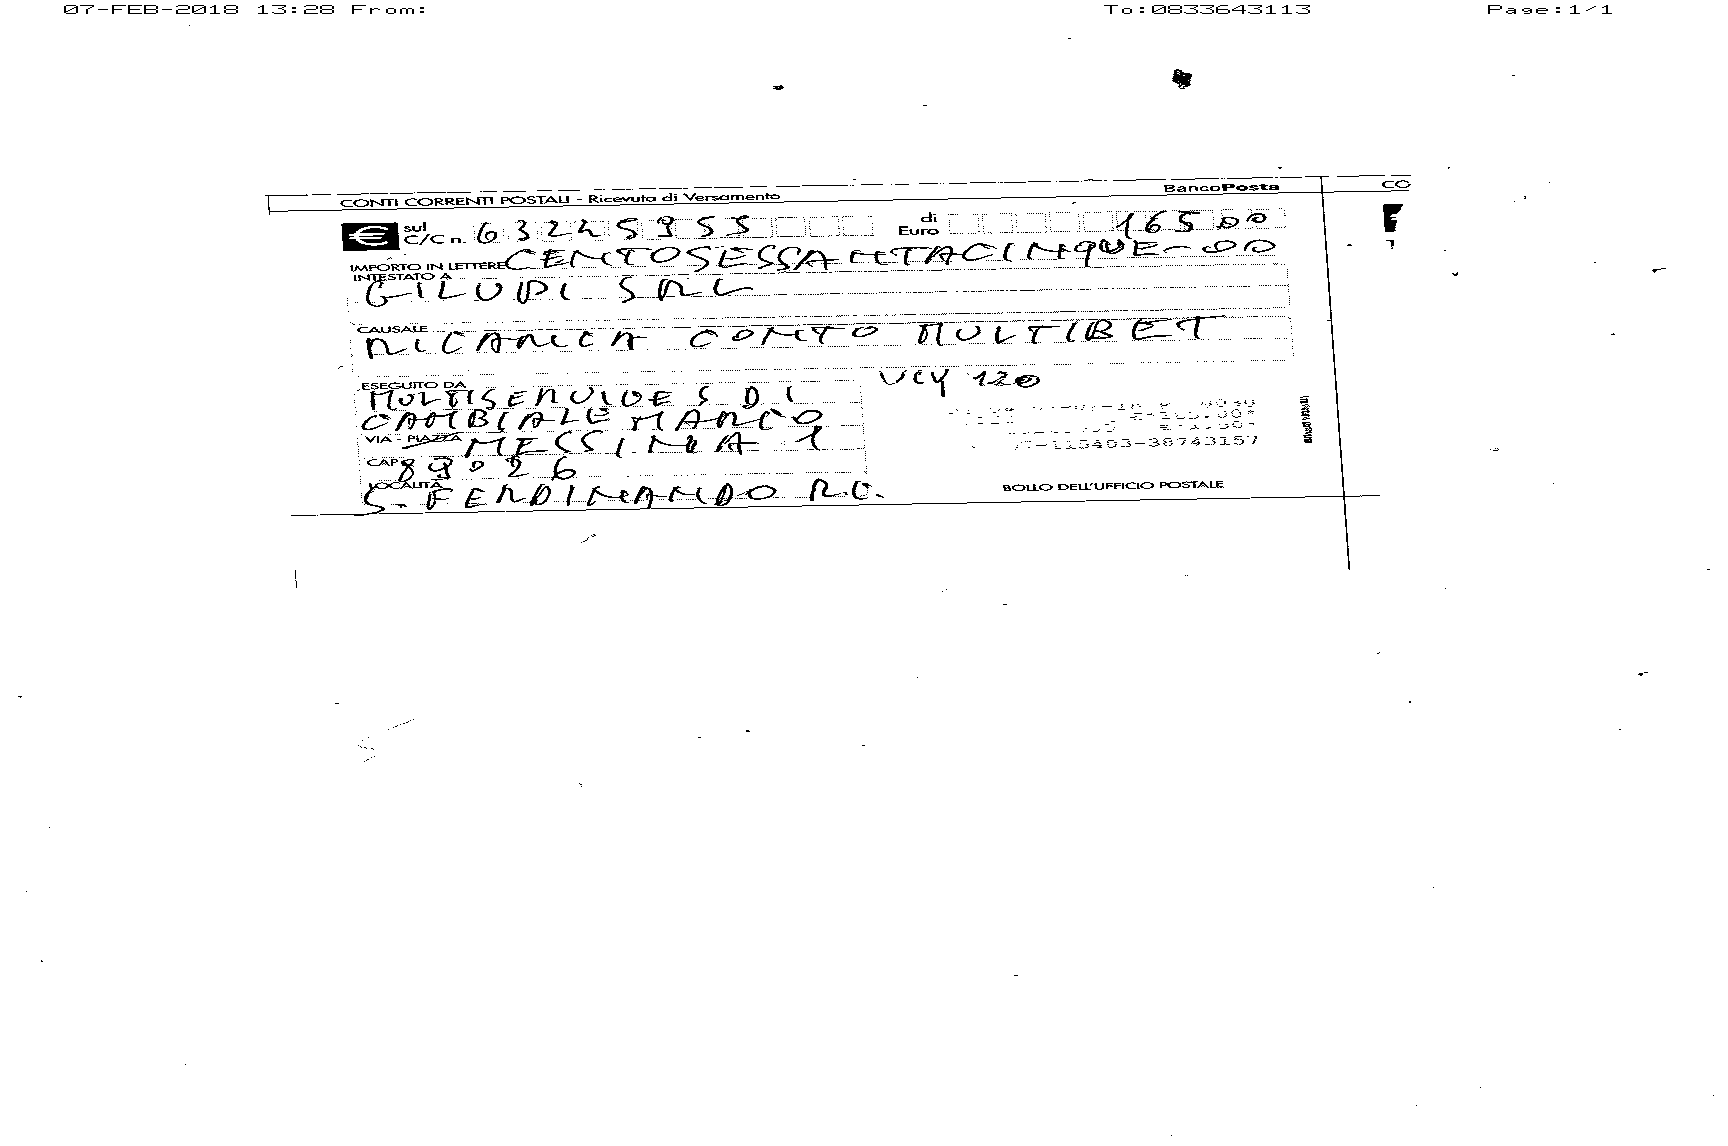 07-FEB-2018 13:28 From: To:0833643113 Page:1/1
CONTI CORRENTI POSTALI - Ricevuta di Versamento BancoPosta CO
€ sul C/C n. 63245953 di Euro 165 00
IMPORTO IN LETTERE CENTOSESSANTACINQUE-00
INTESTATO A GILUPI SRL
CAUSALE RICARICA CONTO MULTIBET
VCY 120
ESEGUITO DA
MULTISERVICE S DI
CAMBIALE MARCO
VIA - PIAZZA MESSINA 1
CAP 89026
LOCALITÀ S. FERDINANDO RC.
BOLLO DELL'UFFICIO POSTALE